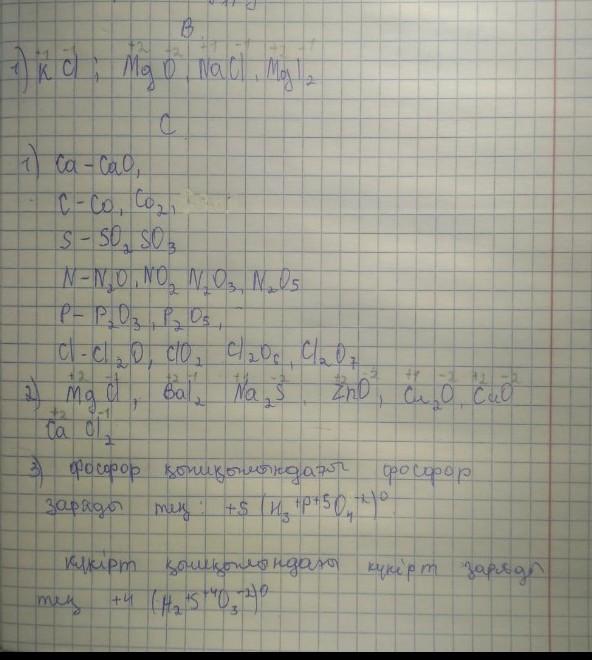 B
1) K⁺¹Cl⁻¹; Mg⁺²O⁻², Na⁺¹Cl⁻¹, Mg⁺²I⁻¹₂
C
1) Ca – CaO,
C – Co, Co₂,
S – SO₂ SO₃
N – N₂O, NO₂ N₂O₃, N₂O₅
P – P₂O₃, P₂O₅,
Cl – Cl₂O, ClO₂ Cl₂O₆, Cl₂O₇
2) Mg⁺²Cl⁻¹, BaI⁻¹₂ Na⁺¹₂S⁻², Zn⁺²O⁻², Cu⁺¹₂O⁻², Cu⁺²O⁻²
Ca⁺²Cl⁻¹₂
3) фосфор қышқылындағы фосфор
заряды тең: +5 (H₃⁺P⁺⁵O₄⁻²)⁰
күкірт қышқылындағы күкірт заряды
тең +4 (H₂⁺S⁺⁴O₃⁻²)⁰